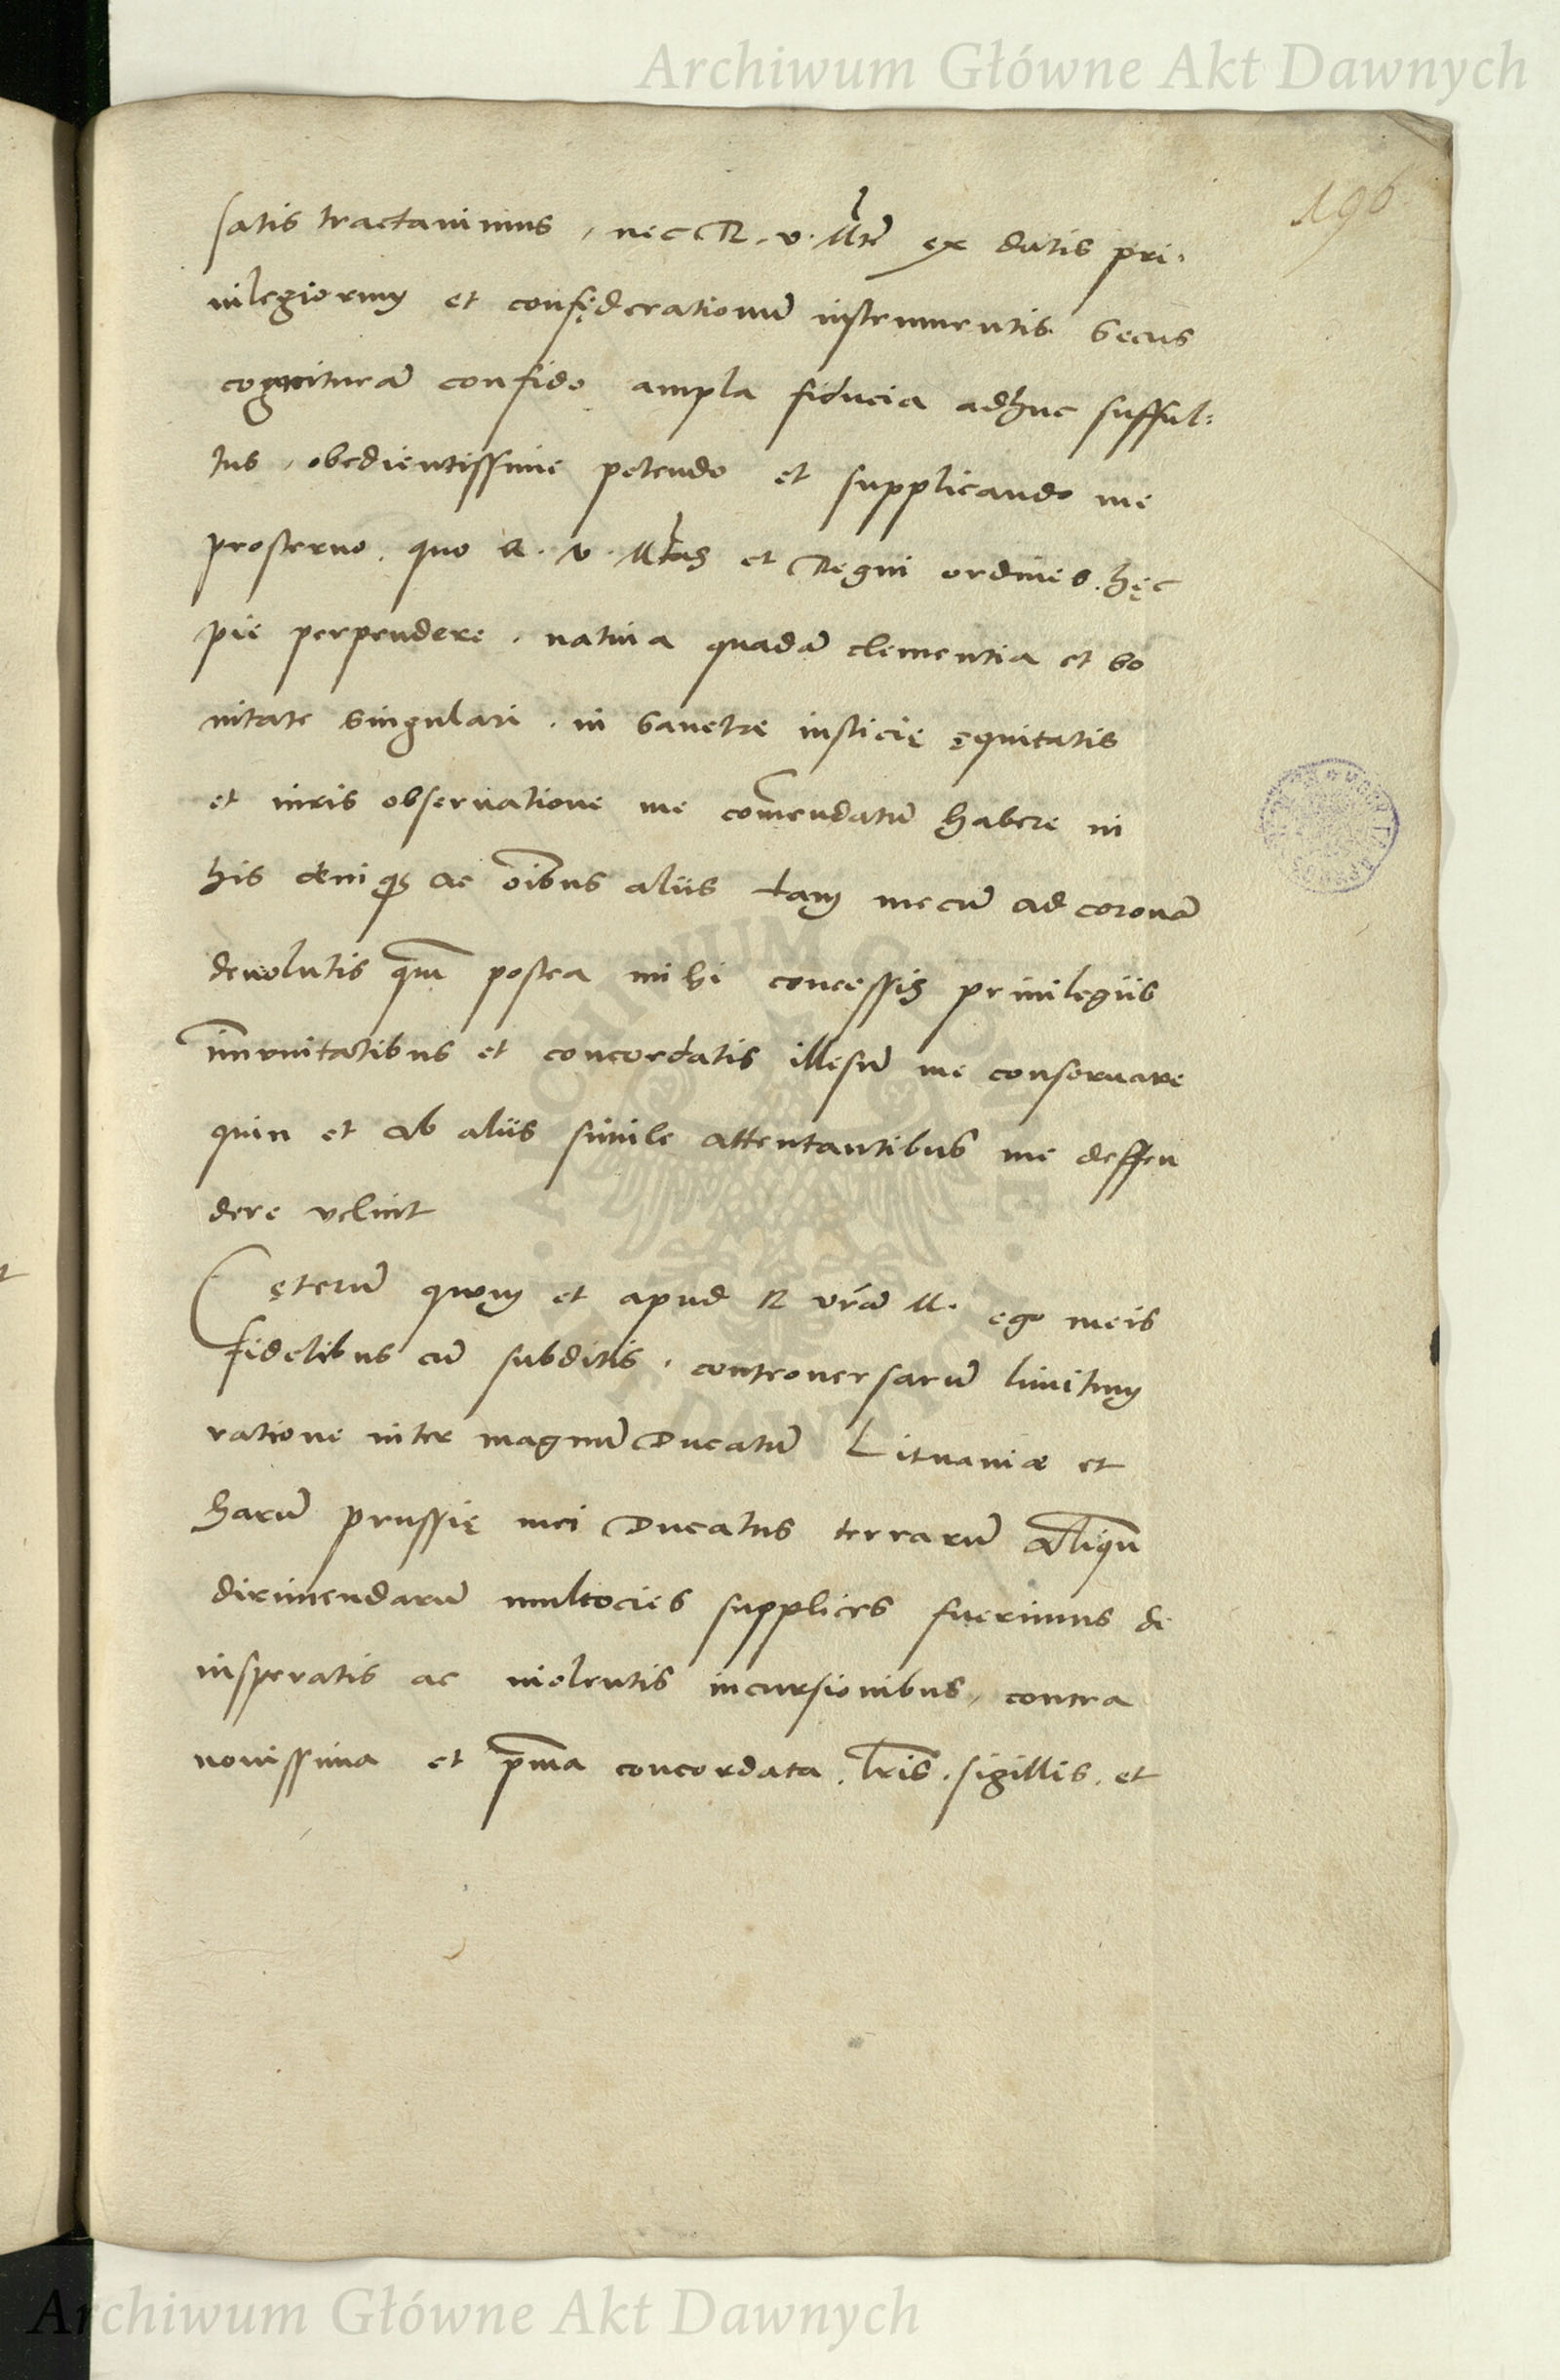 Archiwum Główne Akt Dawnych
196
satis tractauimus, nec R. v. Mtē ex datis pri-
uilegiorum et confęderationū instrumentis secus
cogniturā confido ampla fiducia adhuc sufful-
tus, obedientissime petendo et supplicando me
prosterno, quo R. v. Mtas et Regni ordines hęc
pie perpendere, natiua quadā clementia et bo
nitate singulari, in sanctae iusticię ęquitatis
et iuris obseruatione me com̄endatū habere in
his deniq; ac oībus aliis tam mecū ad coronā
deuolutis qm̄ postea mihi concessis priuilegiis
im̄unitatibus et concordatis illesū me conseruare
quin et ab aliis simile attentantibus me deffen
dere velint
Cęterū quom et apud R vrā M. ego meis
fidelibus cū subditis, controuersarū limitum
ratione inter magnū Ducatū Lituaniae et
harū prussię mei Ducatus terrarū aliqn̄
dirimendarū multocies supplices fuerimus de
insperatis ac violentis incursionibus, contra
nouissima et pm̄a concordata, lris̄, sigillis, et
Archiwum Główne Akt Dawnych